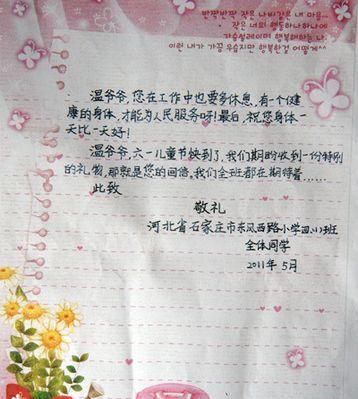 반짝반짝 작은 나비같은 내 마음...
작은 너의 행동하나하나에
가슴설레이며 행복해하는 나
이런 내가 가끔 우습지만 행복한걸 어떻게^^
温爷爷，您在工作中也要多休息，有一个健
康的身体，才能为人民服务呀！最后，祝您身体一
天比一天好！
温爷爷，六一儿童节快到了，我们期盼收到一份特别
的礼物，那就是您的回信，我们全班都在期待着……
此致
敬礼
河北省石家庄市东风西路小学四(1)班
全体同学
2011年5月